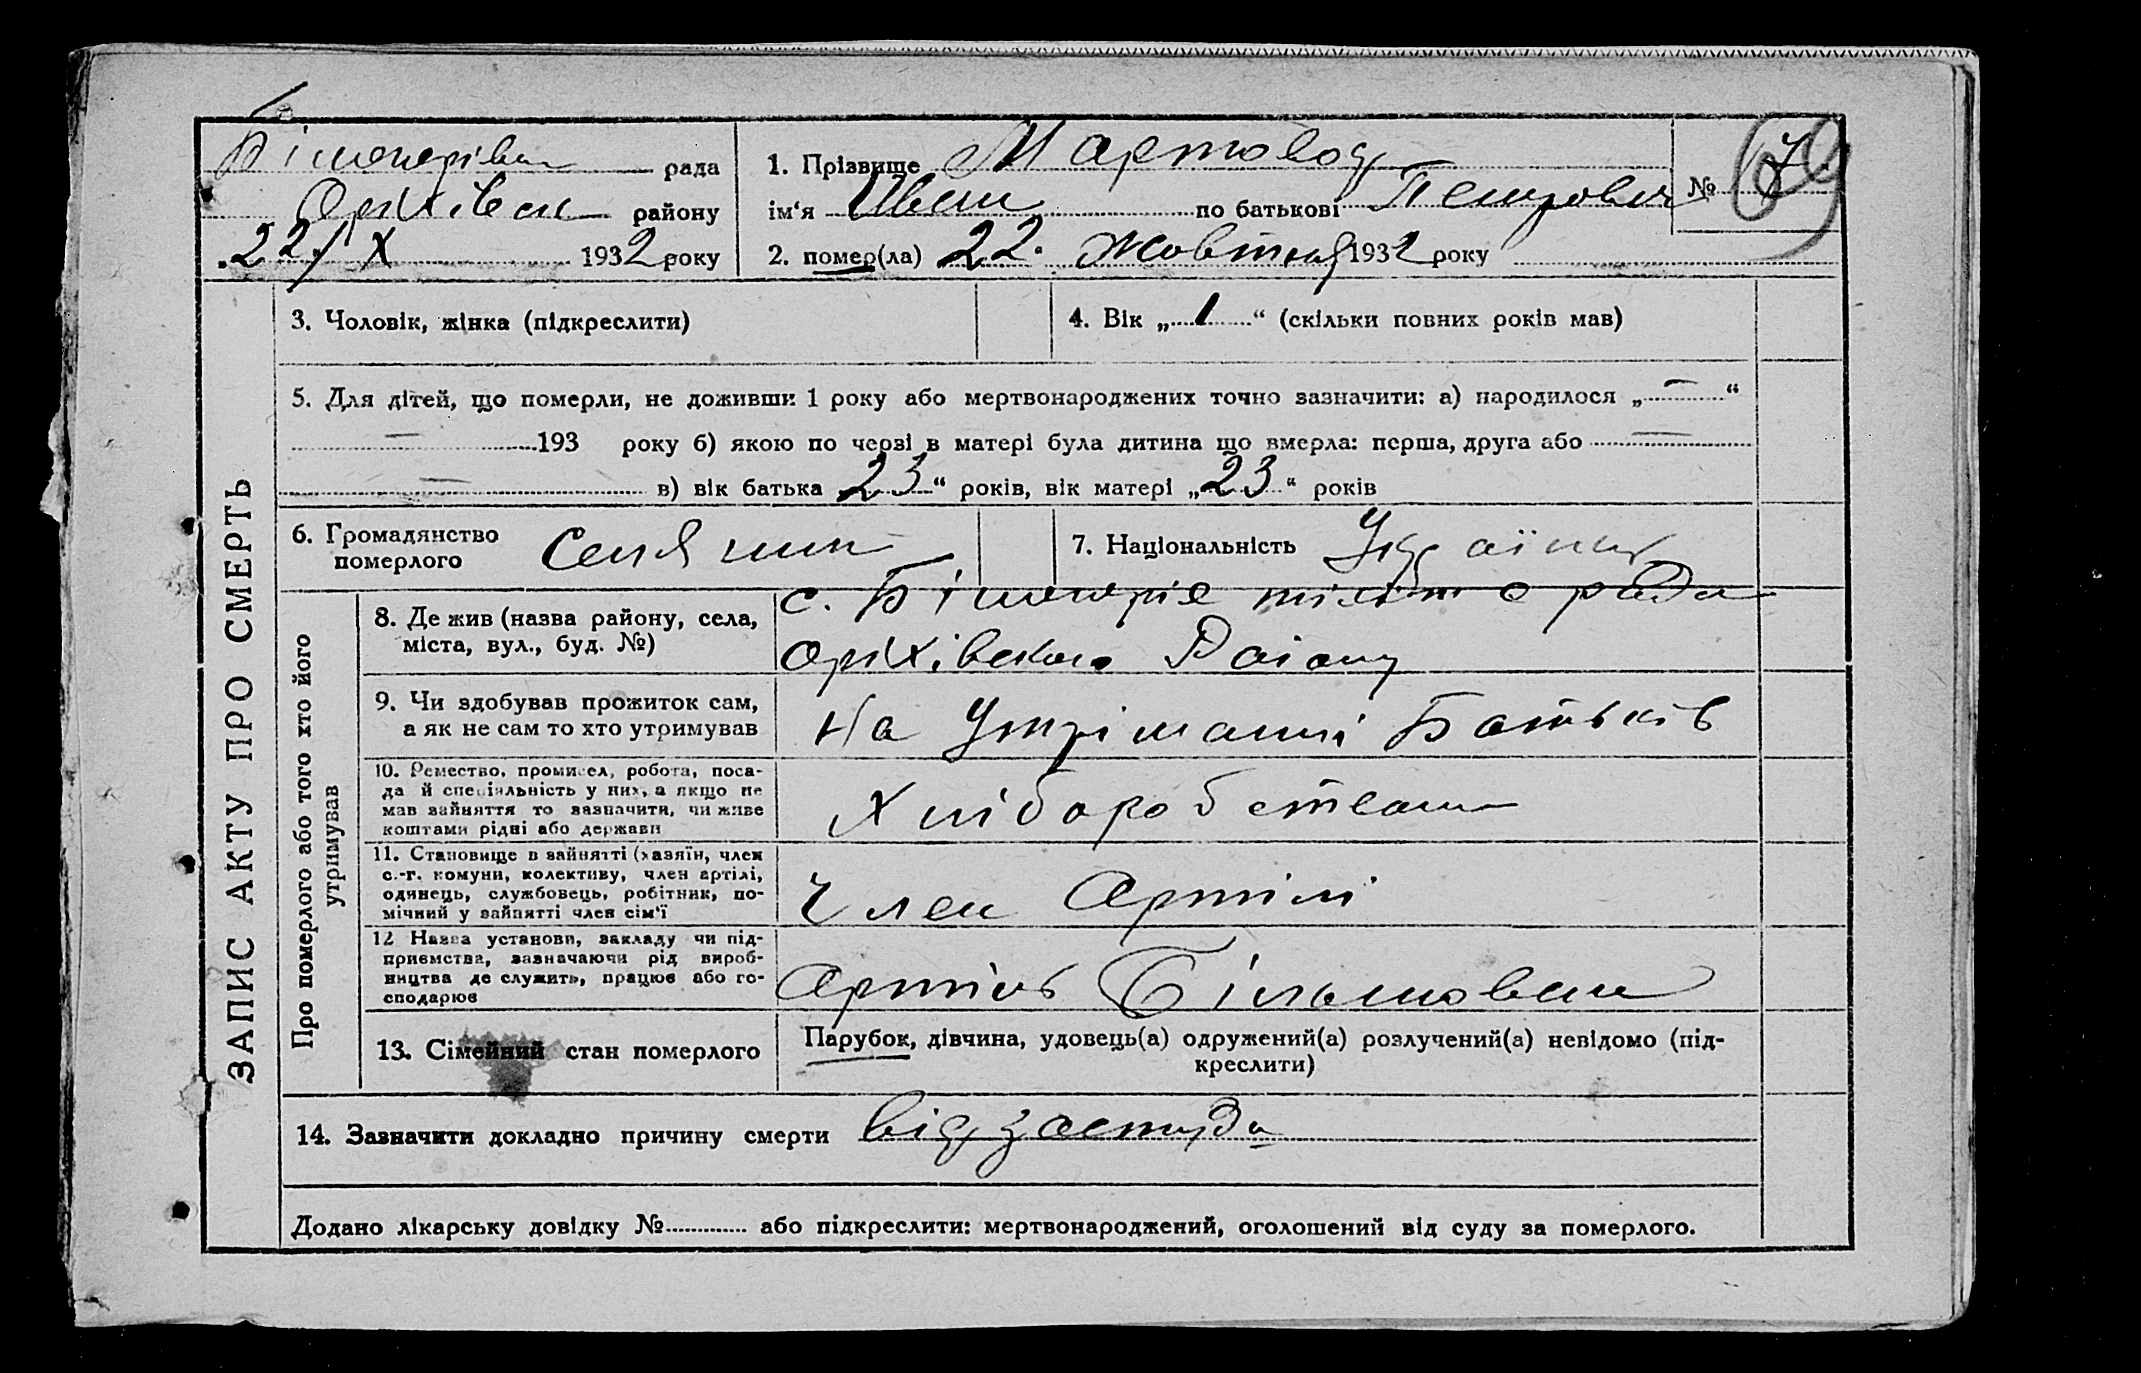 рада
Оріхівськ району
22/X 1932 року
1. Прізвище Мартовод
ім‘я Иван по батькові Петрович
№ 7
69
2. помер(ла) 22. жовтня 1932 року
ЗАПИС АКТУ ПРО СМЕРТЬ
3. Чоловік, жінка (підкреслити)
4. Вік „ 1 “ (скільки повних років мав)
5. Для дітей, що померли, не доживши 1 року або мертвонароджених точно зазначити: а) народилося „ — “
— 193 року б) якою по черзі в матері була дитина що вмерла: перша, друга або —
— в) вік батька 23 “ років, вік матері „ 23 “ років
6. Громадянство
померлого
Селянин
7. Національність Українц
Про померлого або того хто його
утримував
8. Де жив (назва району, села,
міста, вул., буд. №)
с. рада
Оріхівського Раіону
9. Чи здобував прожиток сам,
а як не сам то хто утримував
На Утріманні Батьків
10. Ремество, промисел, робота, поса-
да й спеціальність у них, а якщо не
мав зайняття то зазначити, чи живе
коштами рідні або держави
Хліборобством
11. Становище в зайнятті (хазяїн, член
с.-г. комуни, колективу, член артілі,
одинець, службовець, робітник, по-
мічний у зайнятті член сім‘ї
Член Артілі
12 Назва установи, закладу чи під-
приємства, зазначаючи рід вироб-
ництва де служить, працює або го-
сподарює
Артіль Більшовик
13. Сімейний стан померлого
Парубок, дівчина, удовець(а) одружений(а) розлучений(а) невідомо (під-
креслити)
14. Зазначити докладно причину смерти від застуди
Додано лікарську довідку № або підкреслити: мертвонароджений, оголошений від суду за померлого.